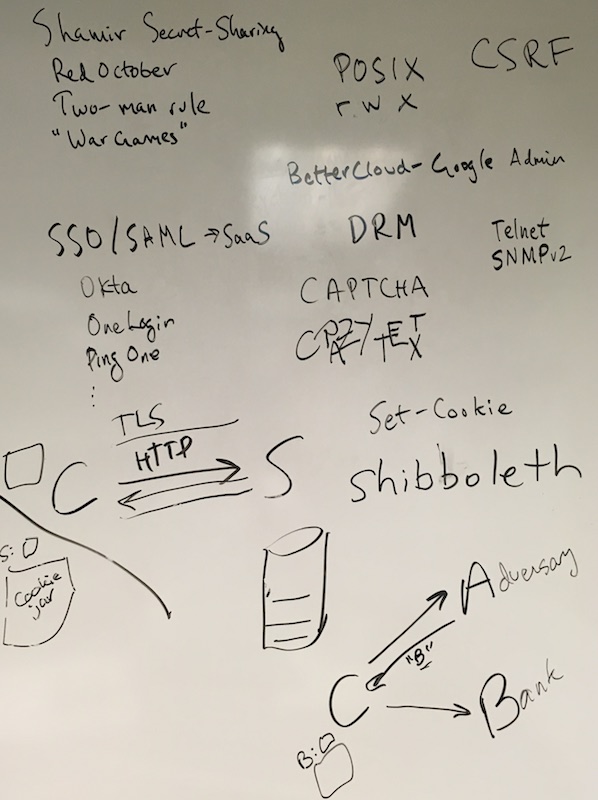 Shamir Secret-Sharing
Red October
Two-man rule
"War Games"
POSIX
r w x
CSRF
BetterCloud - Google Admin
SSO/SAML → SaaS
Okta
OneLogin
Ping One
⋮
DRM
CAPTCHA
CRAZY TEXT
Telnet
SNMPv2
TLS
HTTP
C
S
Set-Cookie
Shibboleth
S:
Cookie
jar
Adversary
"B"
C
Bank
B: